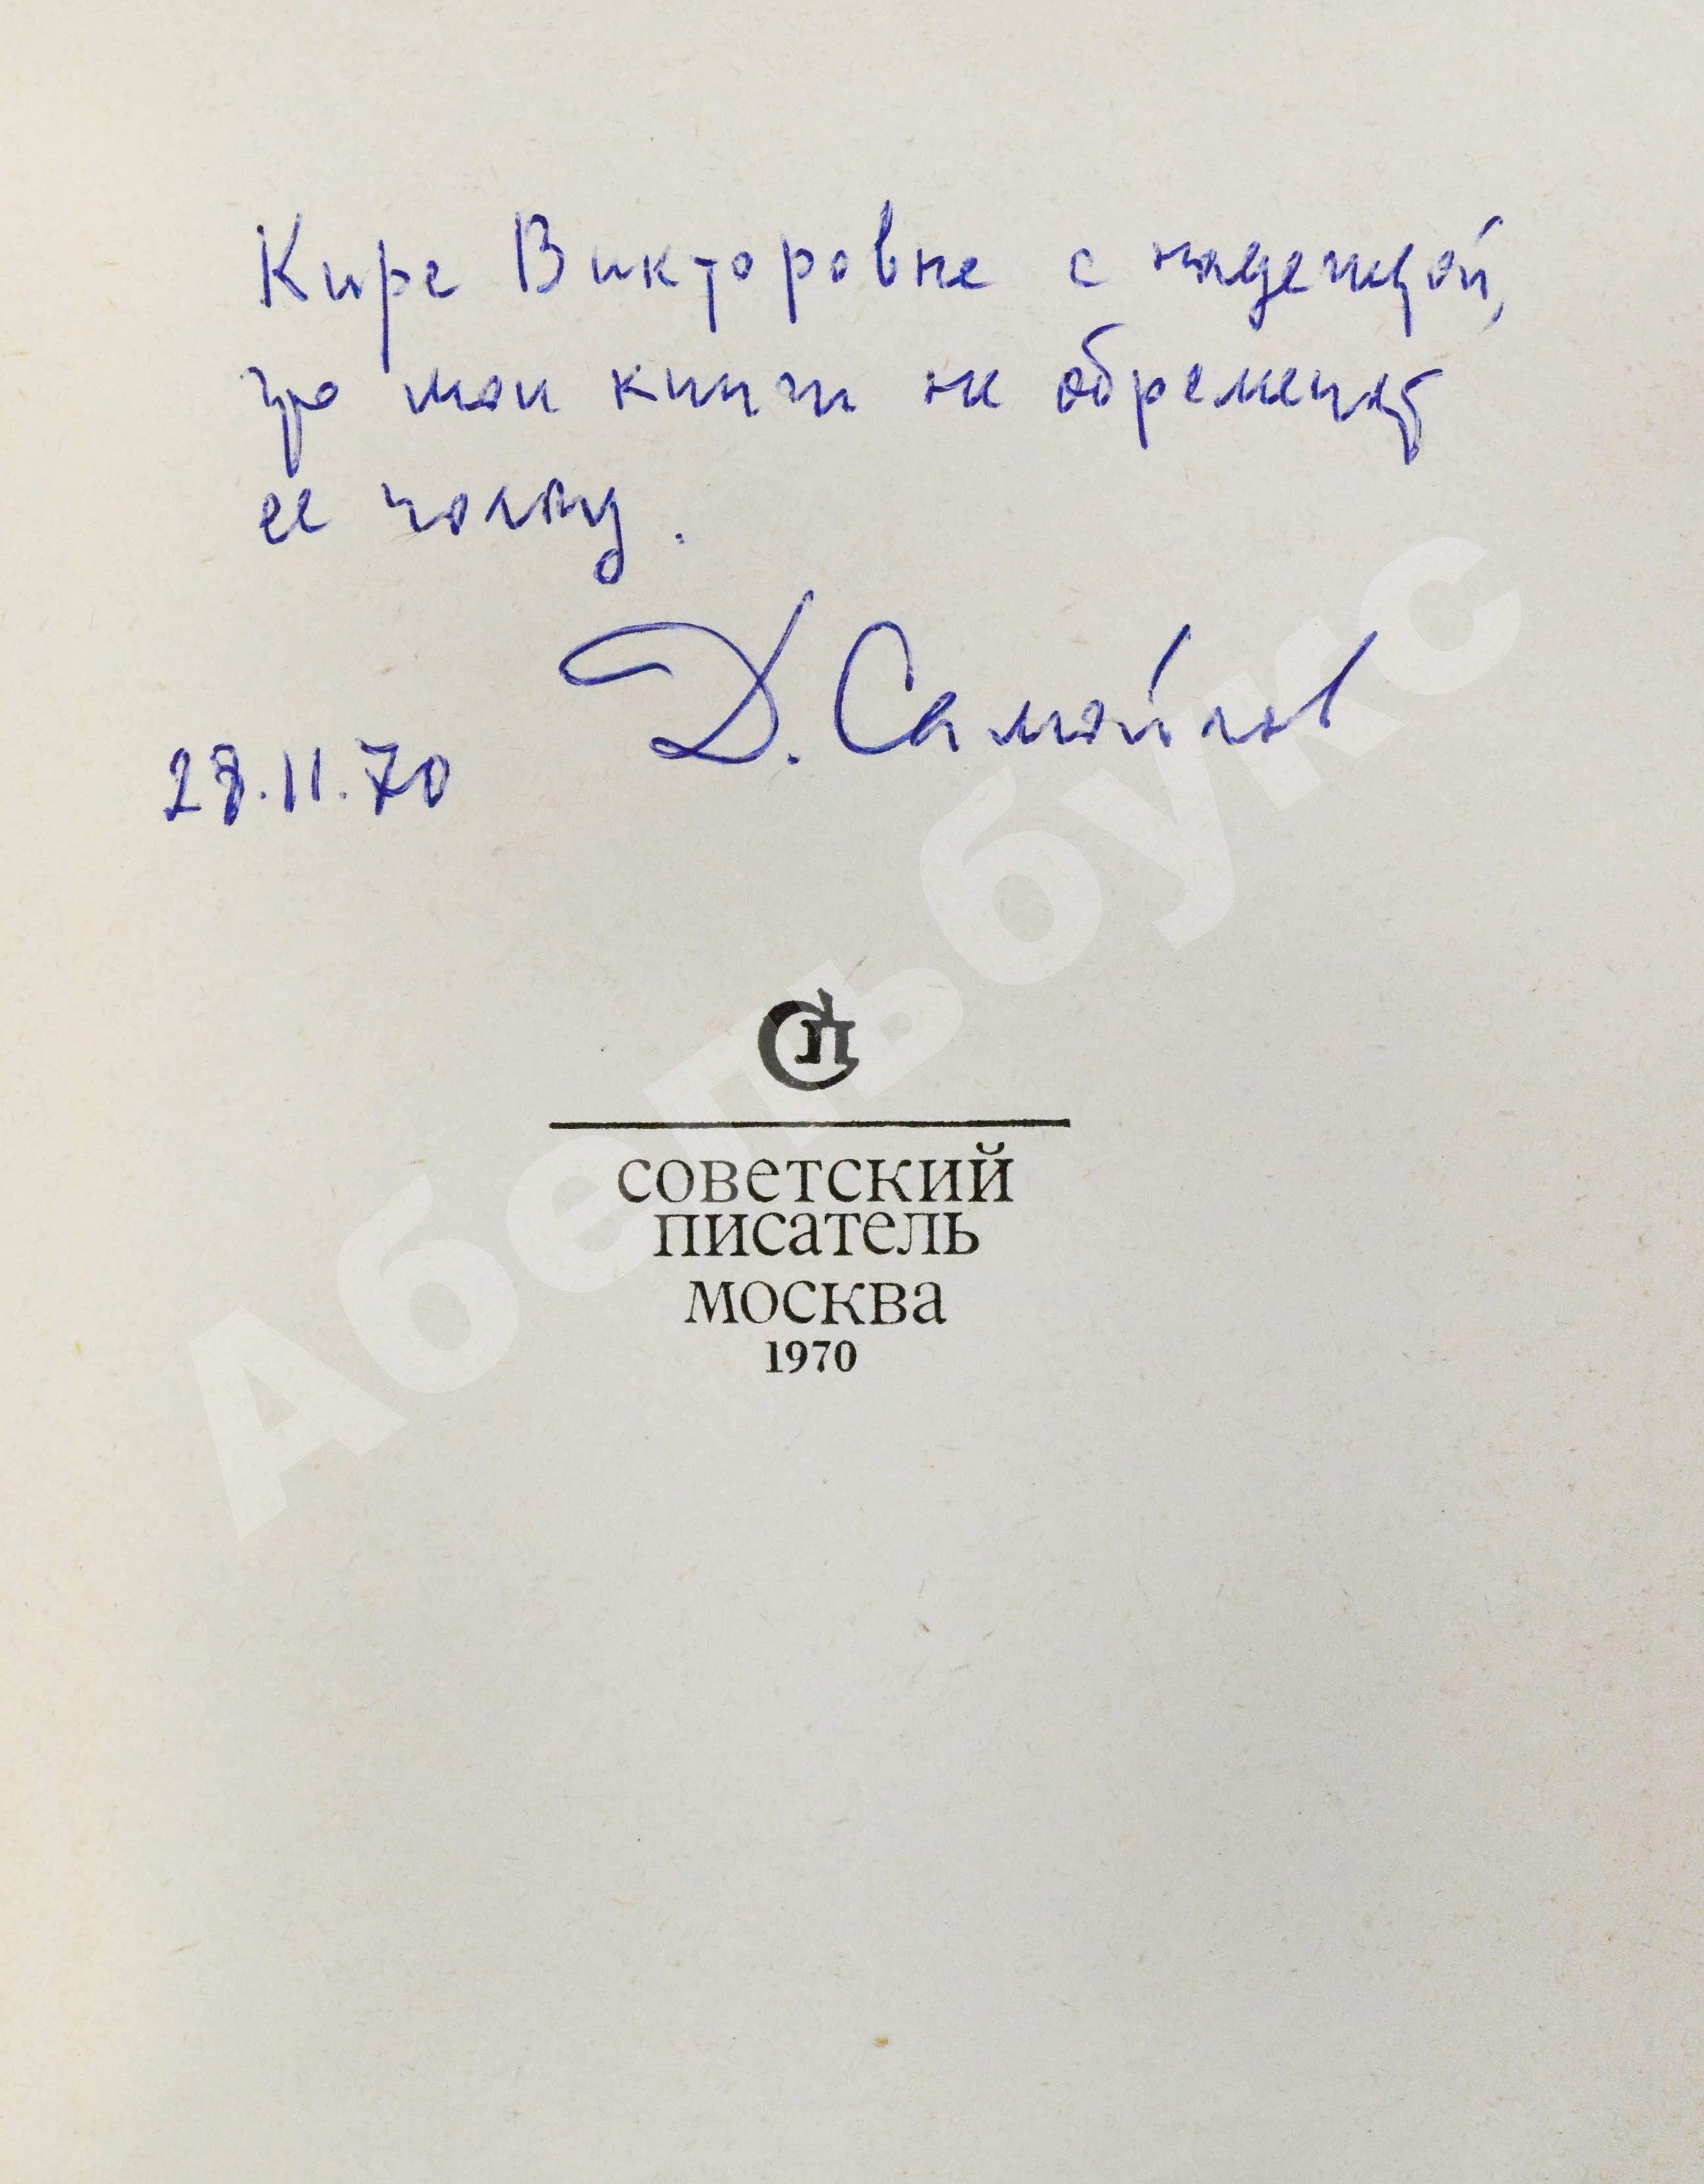 Кире Викторовне с надеждой,
что мои книги не обременят
ее полку.
Д. Самойлов
28.11.70
СП
советский
писатель
москва
1970
Абельбукс